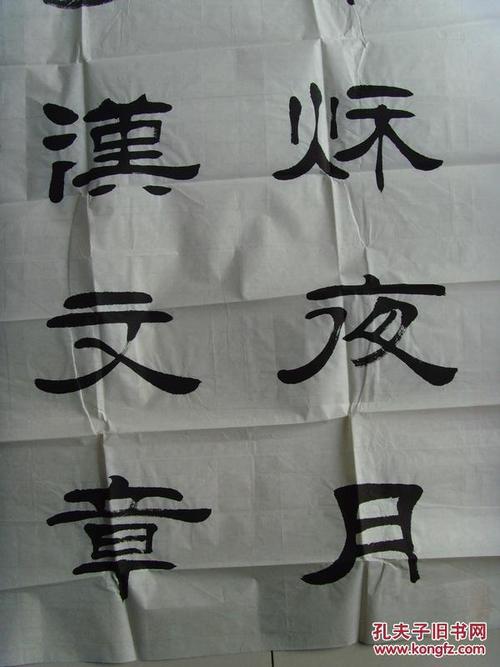 秌夜月
漢文章
孔夫子旧书网
www.kongfz.com